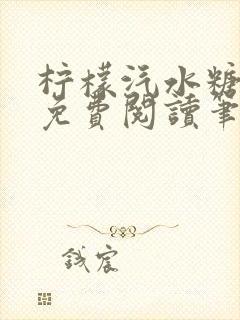 柠檬汽水糖
免費閱讀筆
钱宸